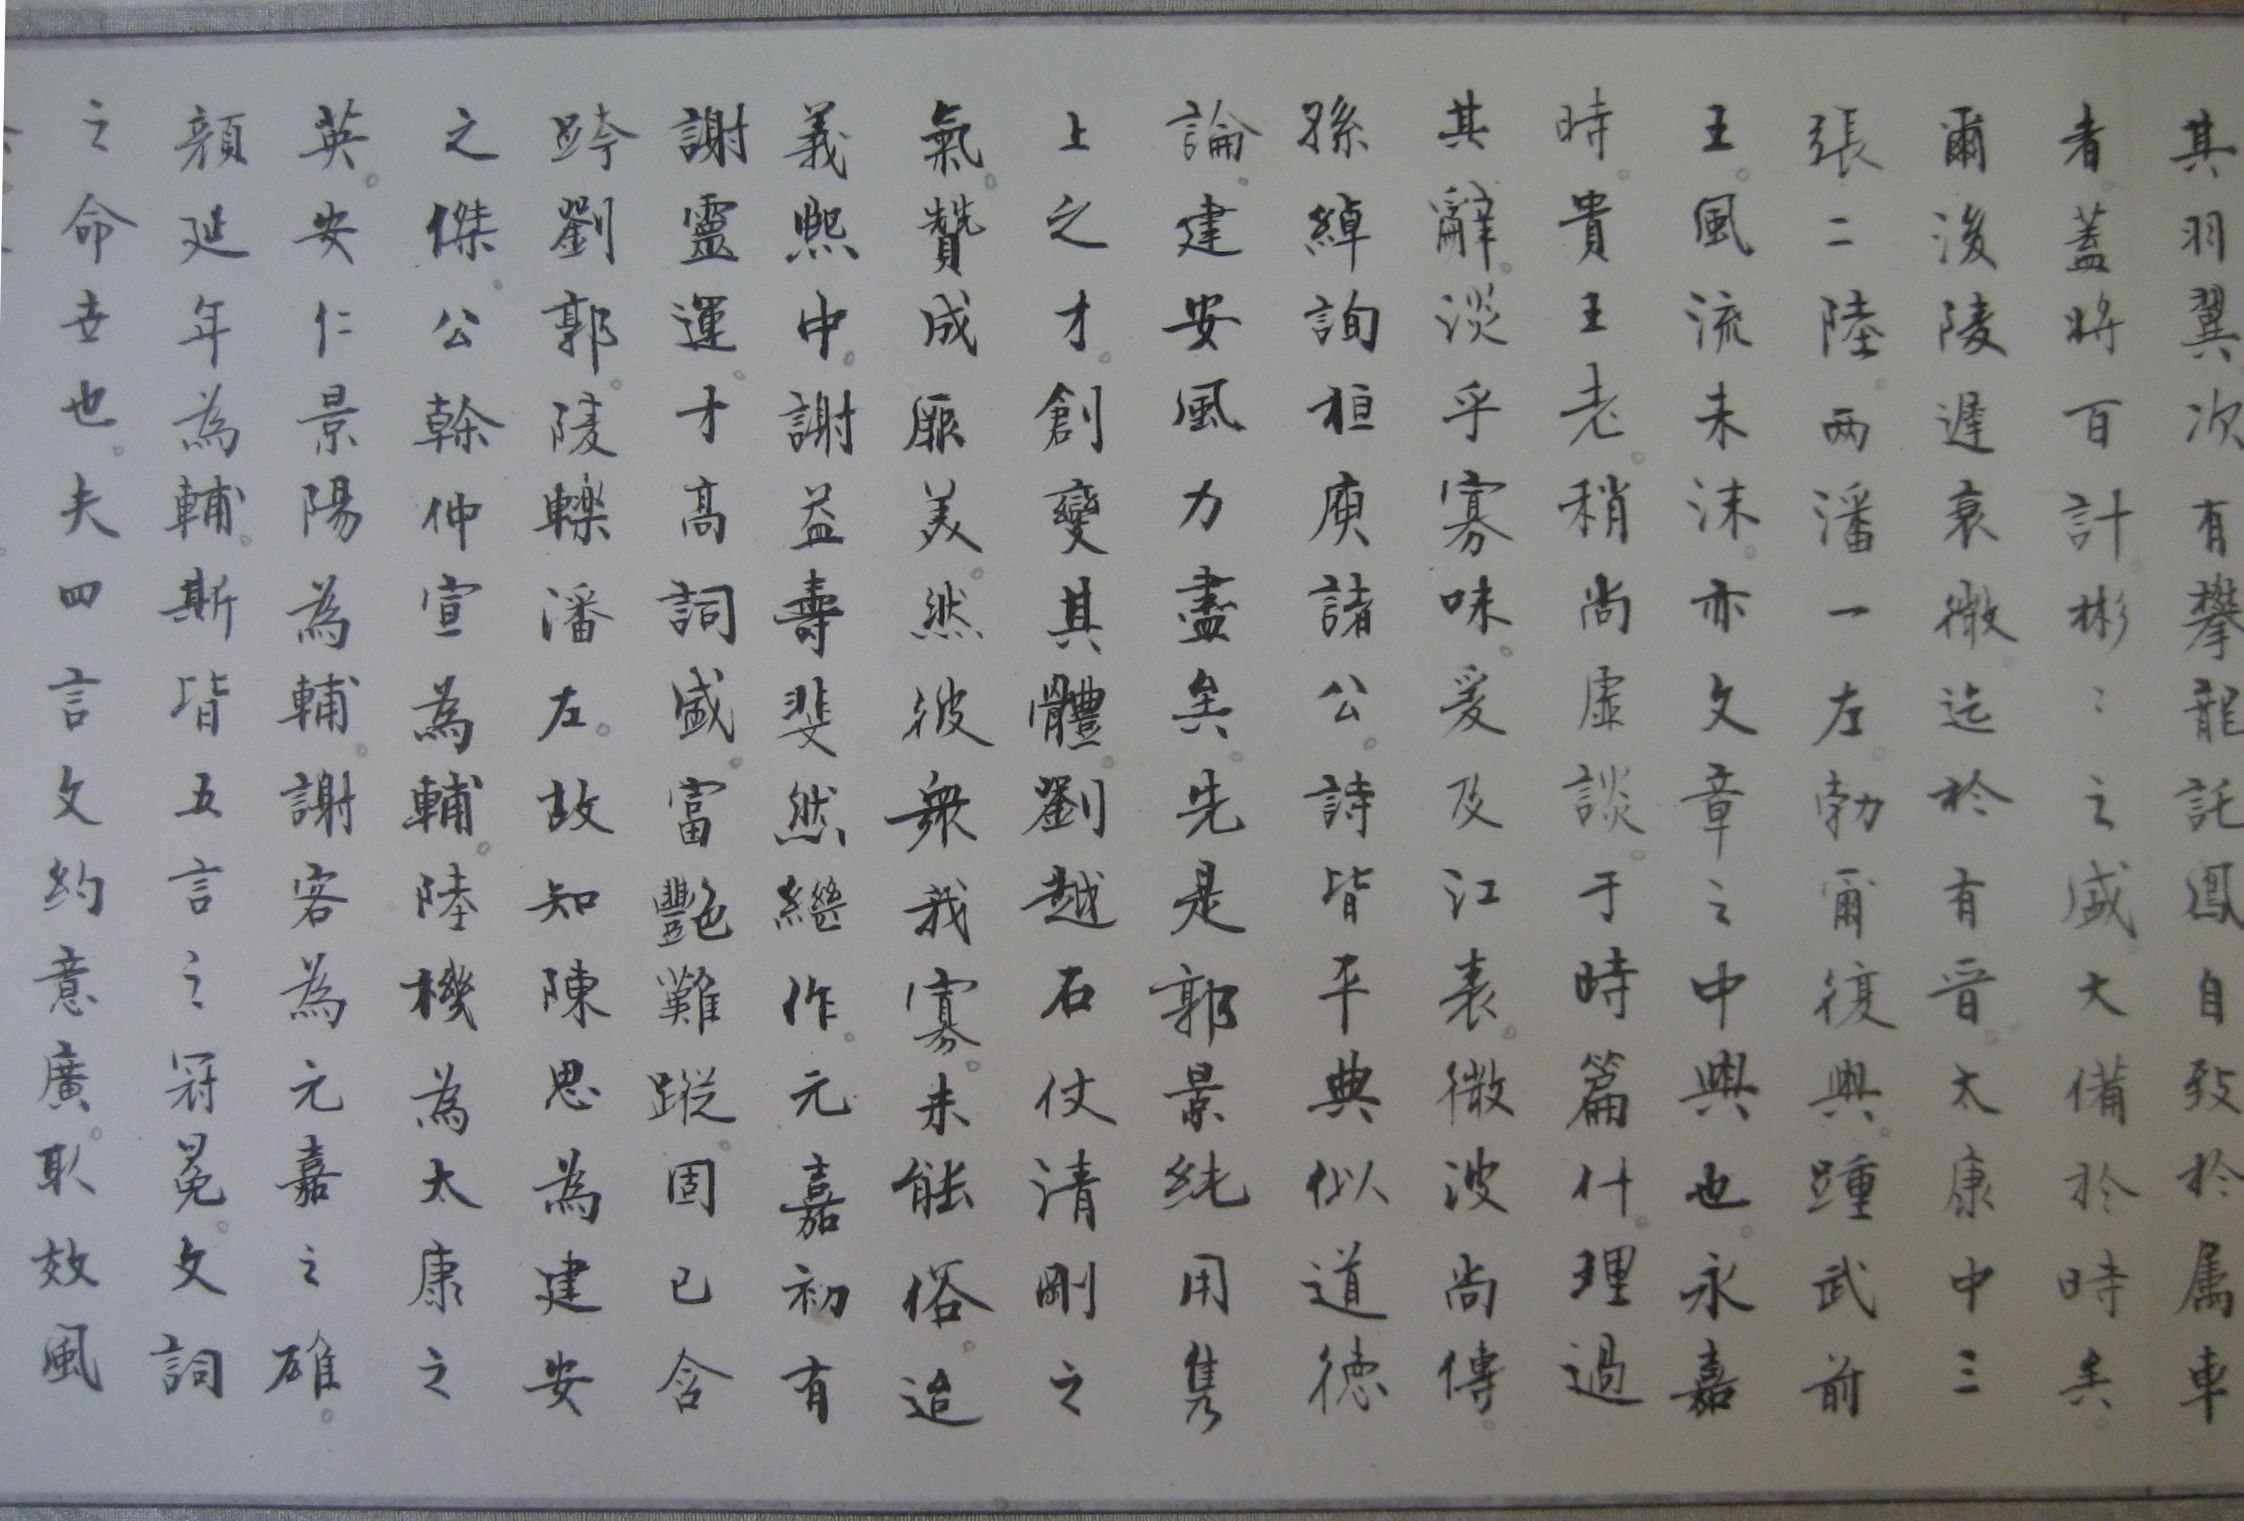 其羽翼次有攀龍託鳳自致於属車
者。蓋將百計。彬〻之盛大備於時矣。
爾後陵遲衰微。迄於有晋。太康中三
張二陸。兩潘一左。勃爾復興。踵武前
王。風流未沫。亦文章之中興也。永嘉
時。貴王老。稍尚虛談。于時篇什。理過
其辭。淡乎寡味。爰及江表。微波尚傳。
孫綽詢桓庾諸公。詩皆平典似道德
論。建安風力盡矣。先是郭景純用雋
上之才。創變其體。劉越石仗清剛之
氣。贊成厥美。然彼衆我寡。未能俗。迨
義熙中。謝益壽斐然繼作。元嘉初有
謝靈運。才高詞盛。富艷難蹤。固已含
跨劉郭。陵轢潘左。故知陳思為建安
之傑。公幹仲宣為輔。陸機為太康之
英。安仁景陽為輔。謝客為元嘉之雄。
顏延年為輔。斯皆五言之冠冕。文詞
之命世也。夫四言文約意廣。取效風